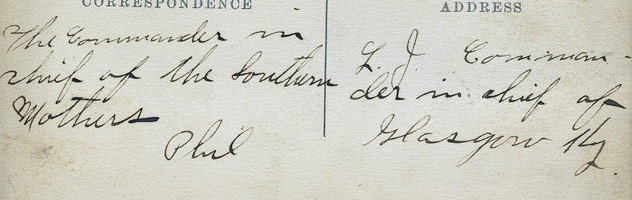 CORRESPONDENCE
The Commander in
chief of the Southern
Mothers
Phil
ADDRESS
L. J. Comman-
der in chief of
Glasgow Ky.